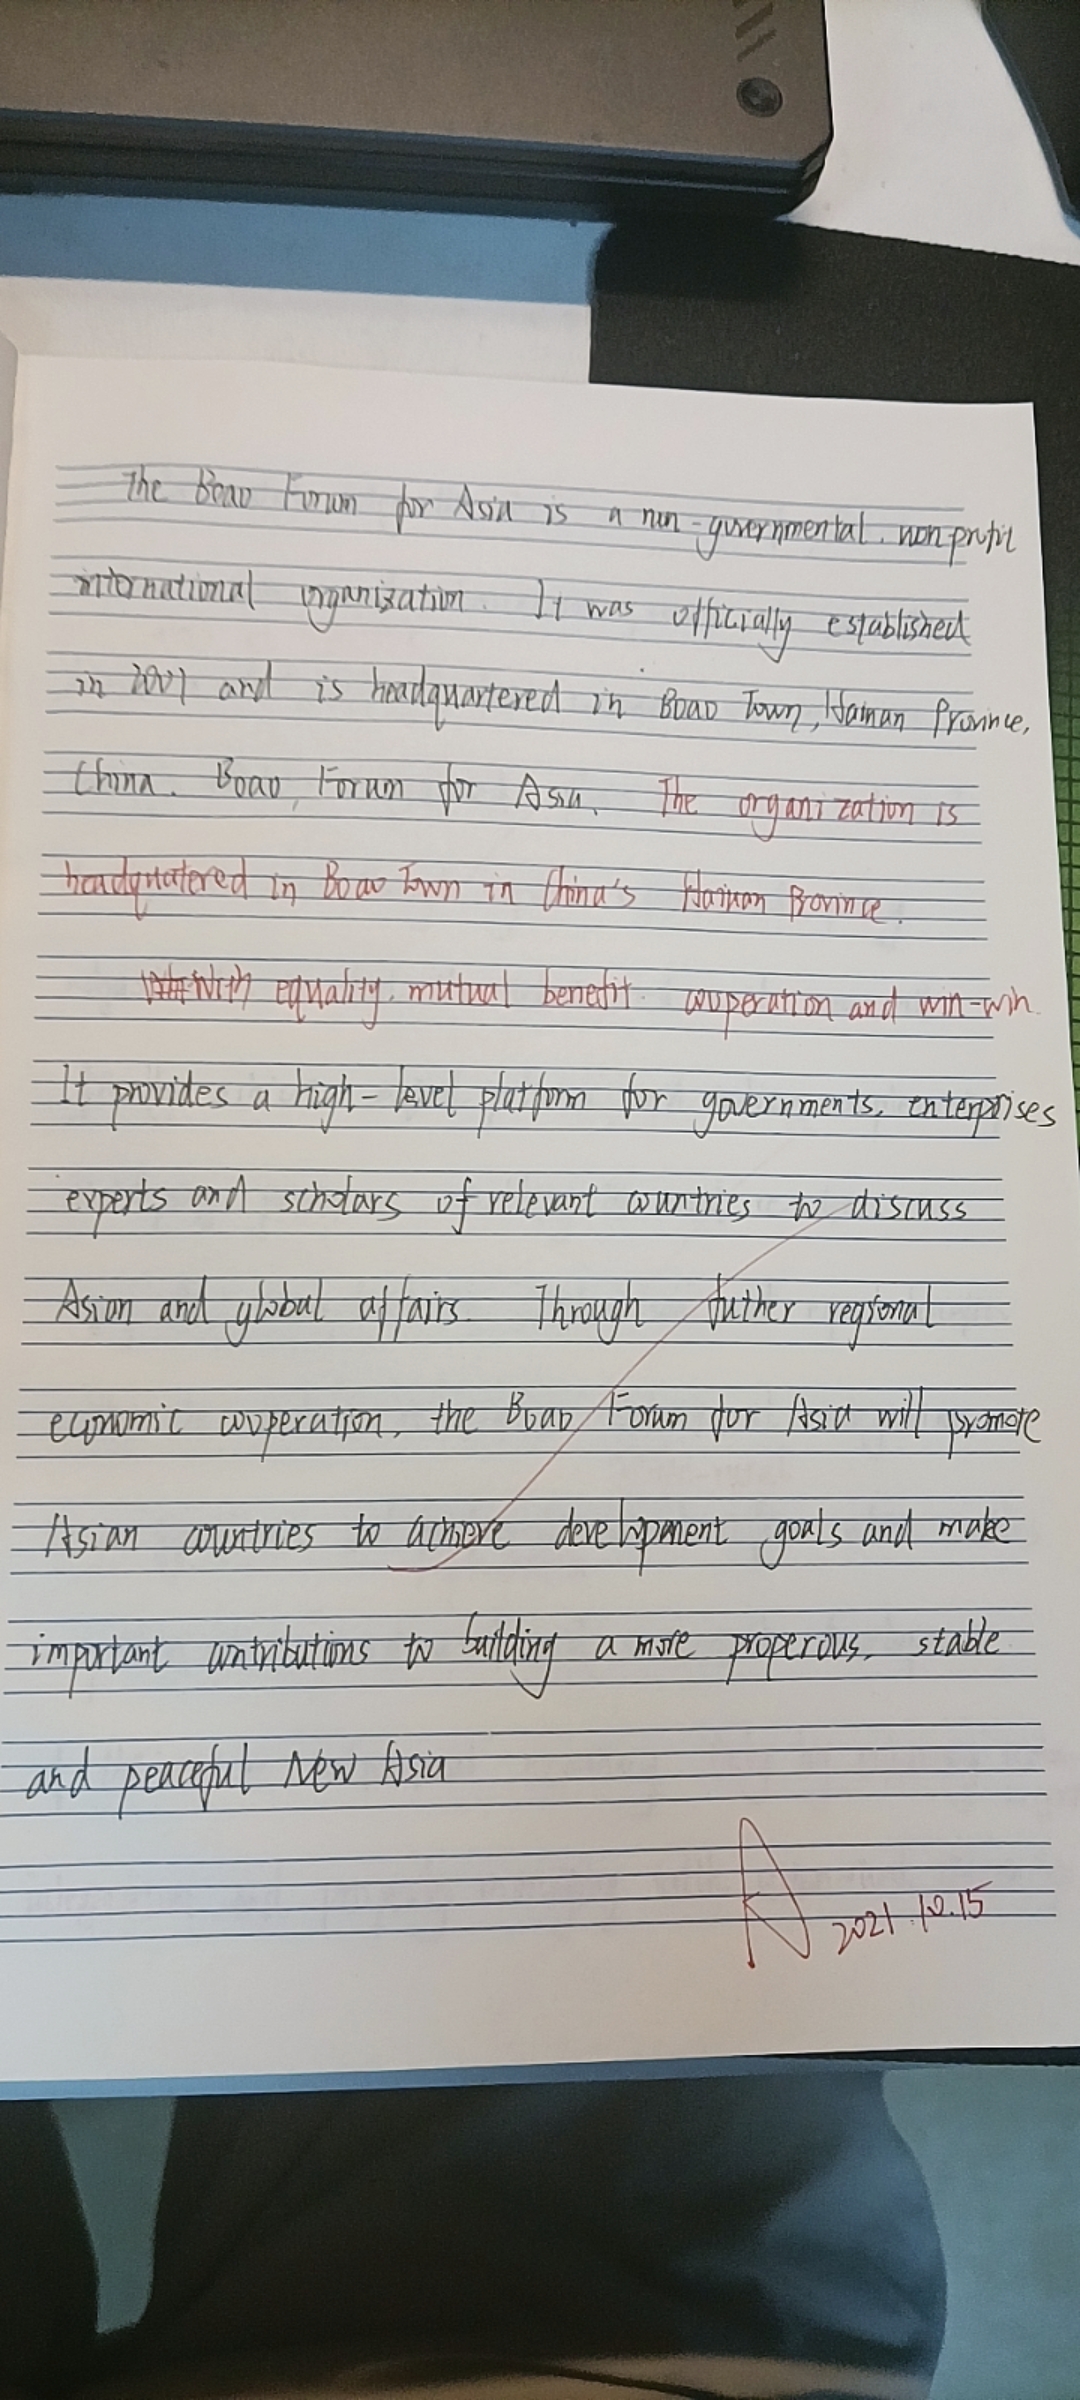 The Boao Forum for Asia is a non-governmental. nonprofit
international organization. It was officially established
in 2001 and is headquartered in Boao Town, Hainan Province,
China. Boao Forum for Asia. The organization is
headquatered in Boao Town in China's Hainan Province.
With equality. mutual benefit. cooperation and win-win.
It provides a high-level platform for governments, enterprises
experts and scholars of relevant countries to discuss
Asian and global affairs. Through futher regional
economic cooperation, the Boao Forum for Asia will promote
Asian countries to achieve development goals and make
important contributions to building a more properous, stable
and peaceful New Asia
2021.10.15